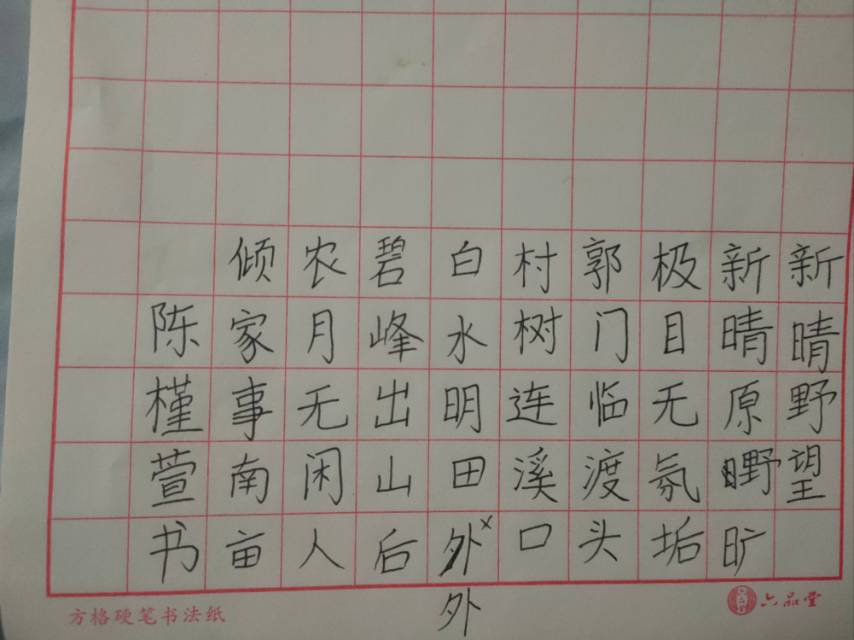 新晴野望
新晴原野旷
极目无氛垢
郭门临渡头
村树连溪口
白水明田外
外
碧峰出山后
农月无闲人
倾家事南亩
陈槿萱书
方格硬笔书法纸
六品堂